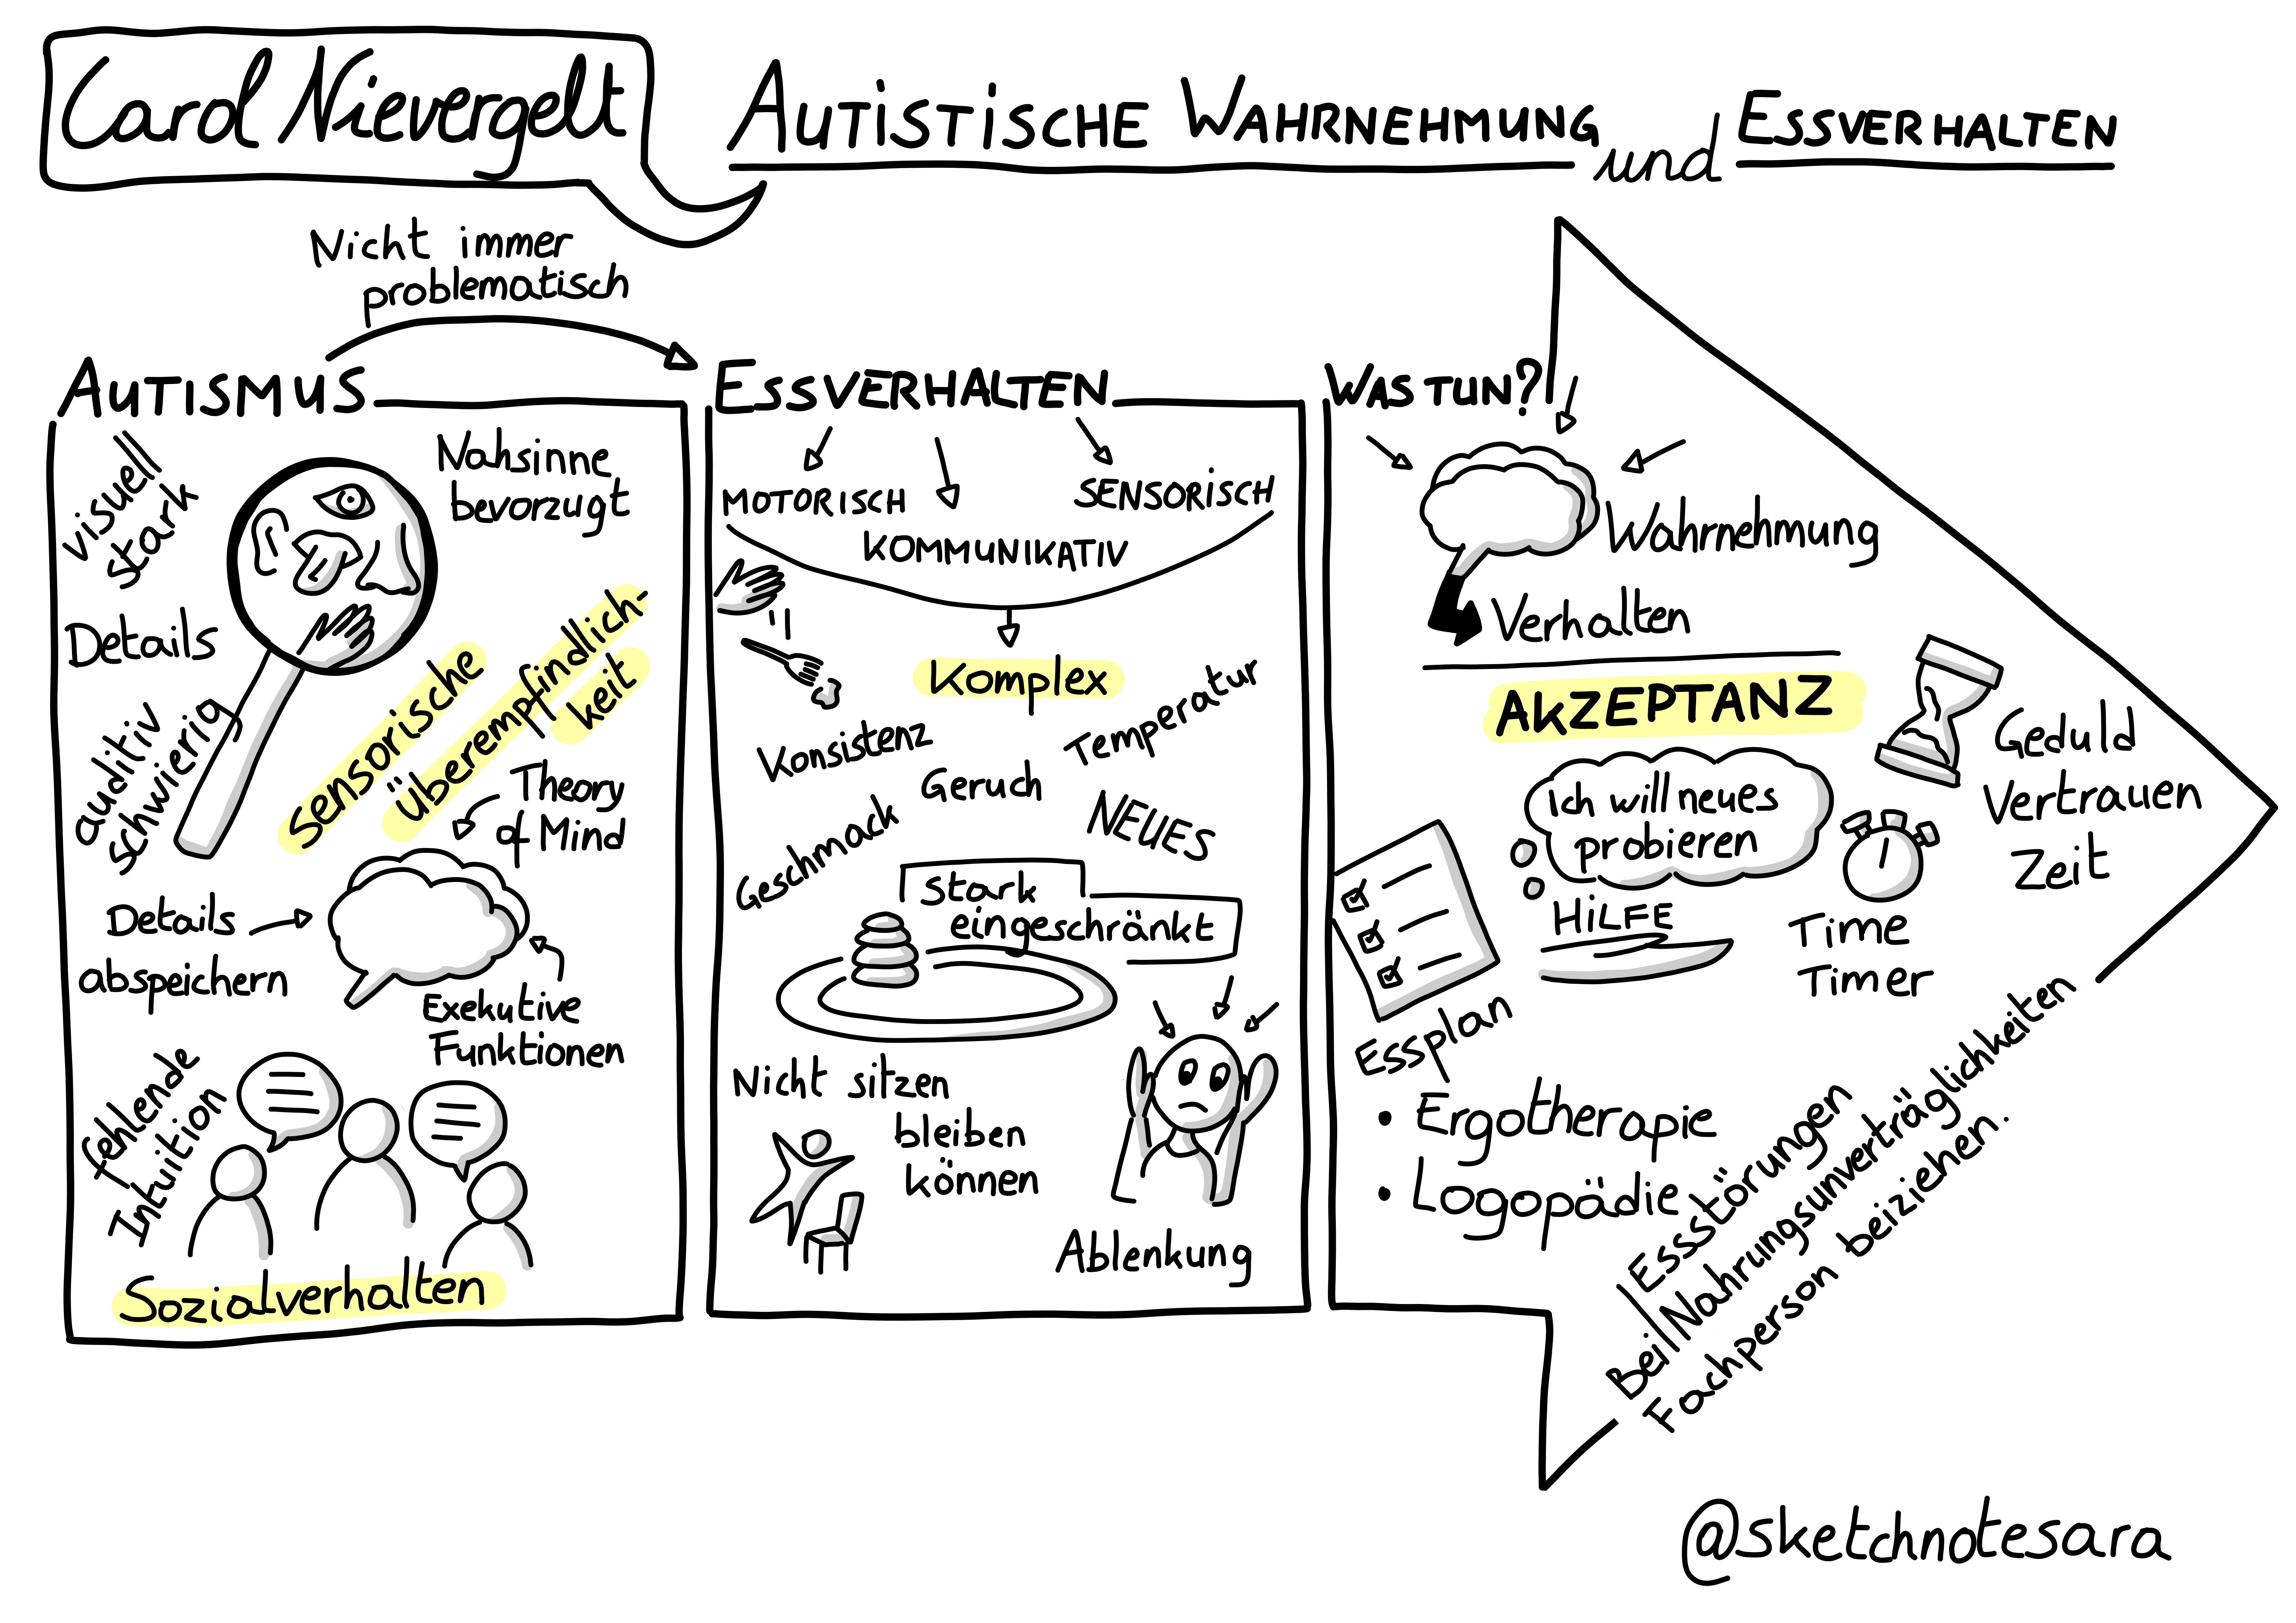 Carol Nievergelt
AUTISTISCHE WAHRNEHMUNG und ESSVERHALTEN
Nicht immer
problematisch
AUTISMUS
visuell
stark
Nahsinne
bevorzugt
Details
auditiv
schwierig
sensorische
überempfindlich-
keit
Theory
of Mind
Details
abspeichern
Exekutive
Funktionen
fehlende
Intuition
Sozialverhalten
ESSVERHALTEN
MOTORISCH
SENSORISCH
KOMMUNIKATIV
Komplex
Konsistenz
Temperatur
Geruch
Geschmack
NEUES
Stark
eingeschränkt
Nicht sitzen
bleiben
können
Ablenkung
WAS TUN?
Wahrnehmung
Verhalten
AKZEPTANZ
Ich will neues
probieren
Geduld
Vertrauen
Zeit
HILFE
Time
Timer
Essplan
• Ergotherapie
• Logopädie
Essstörungen
Bei Nahrungsunverträglichkeiten
Fachperson beiziehen.
@sketchnotesara